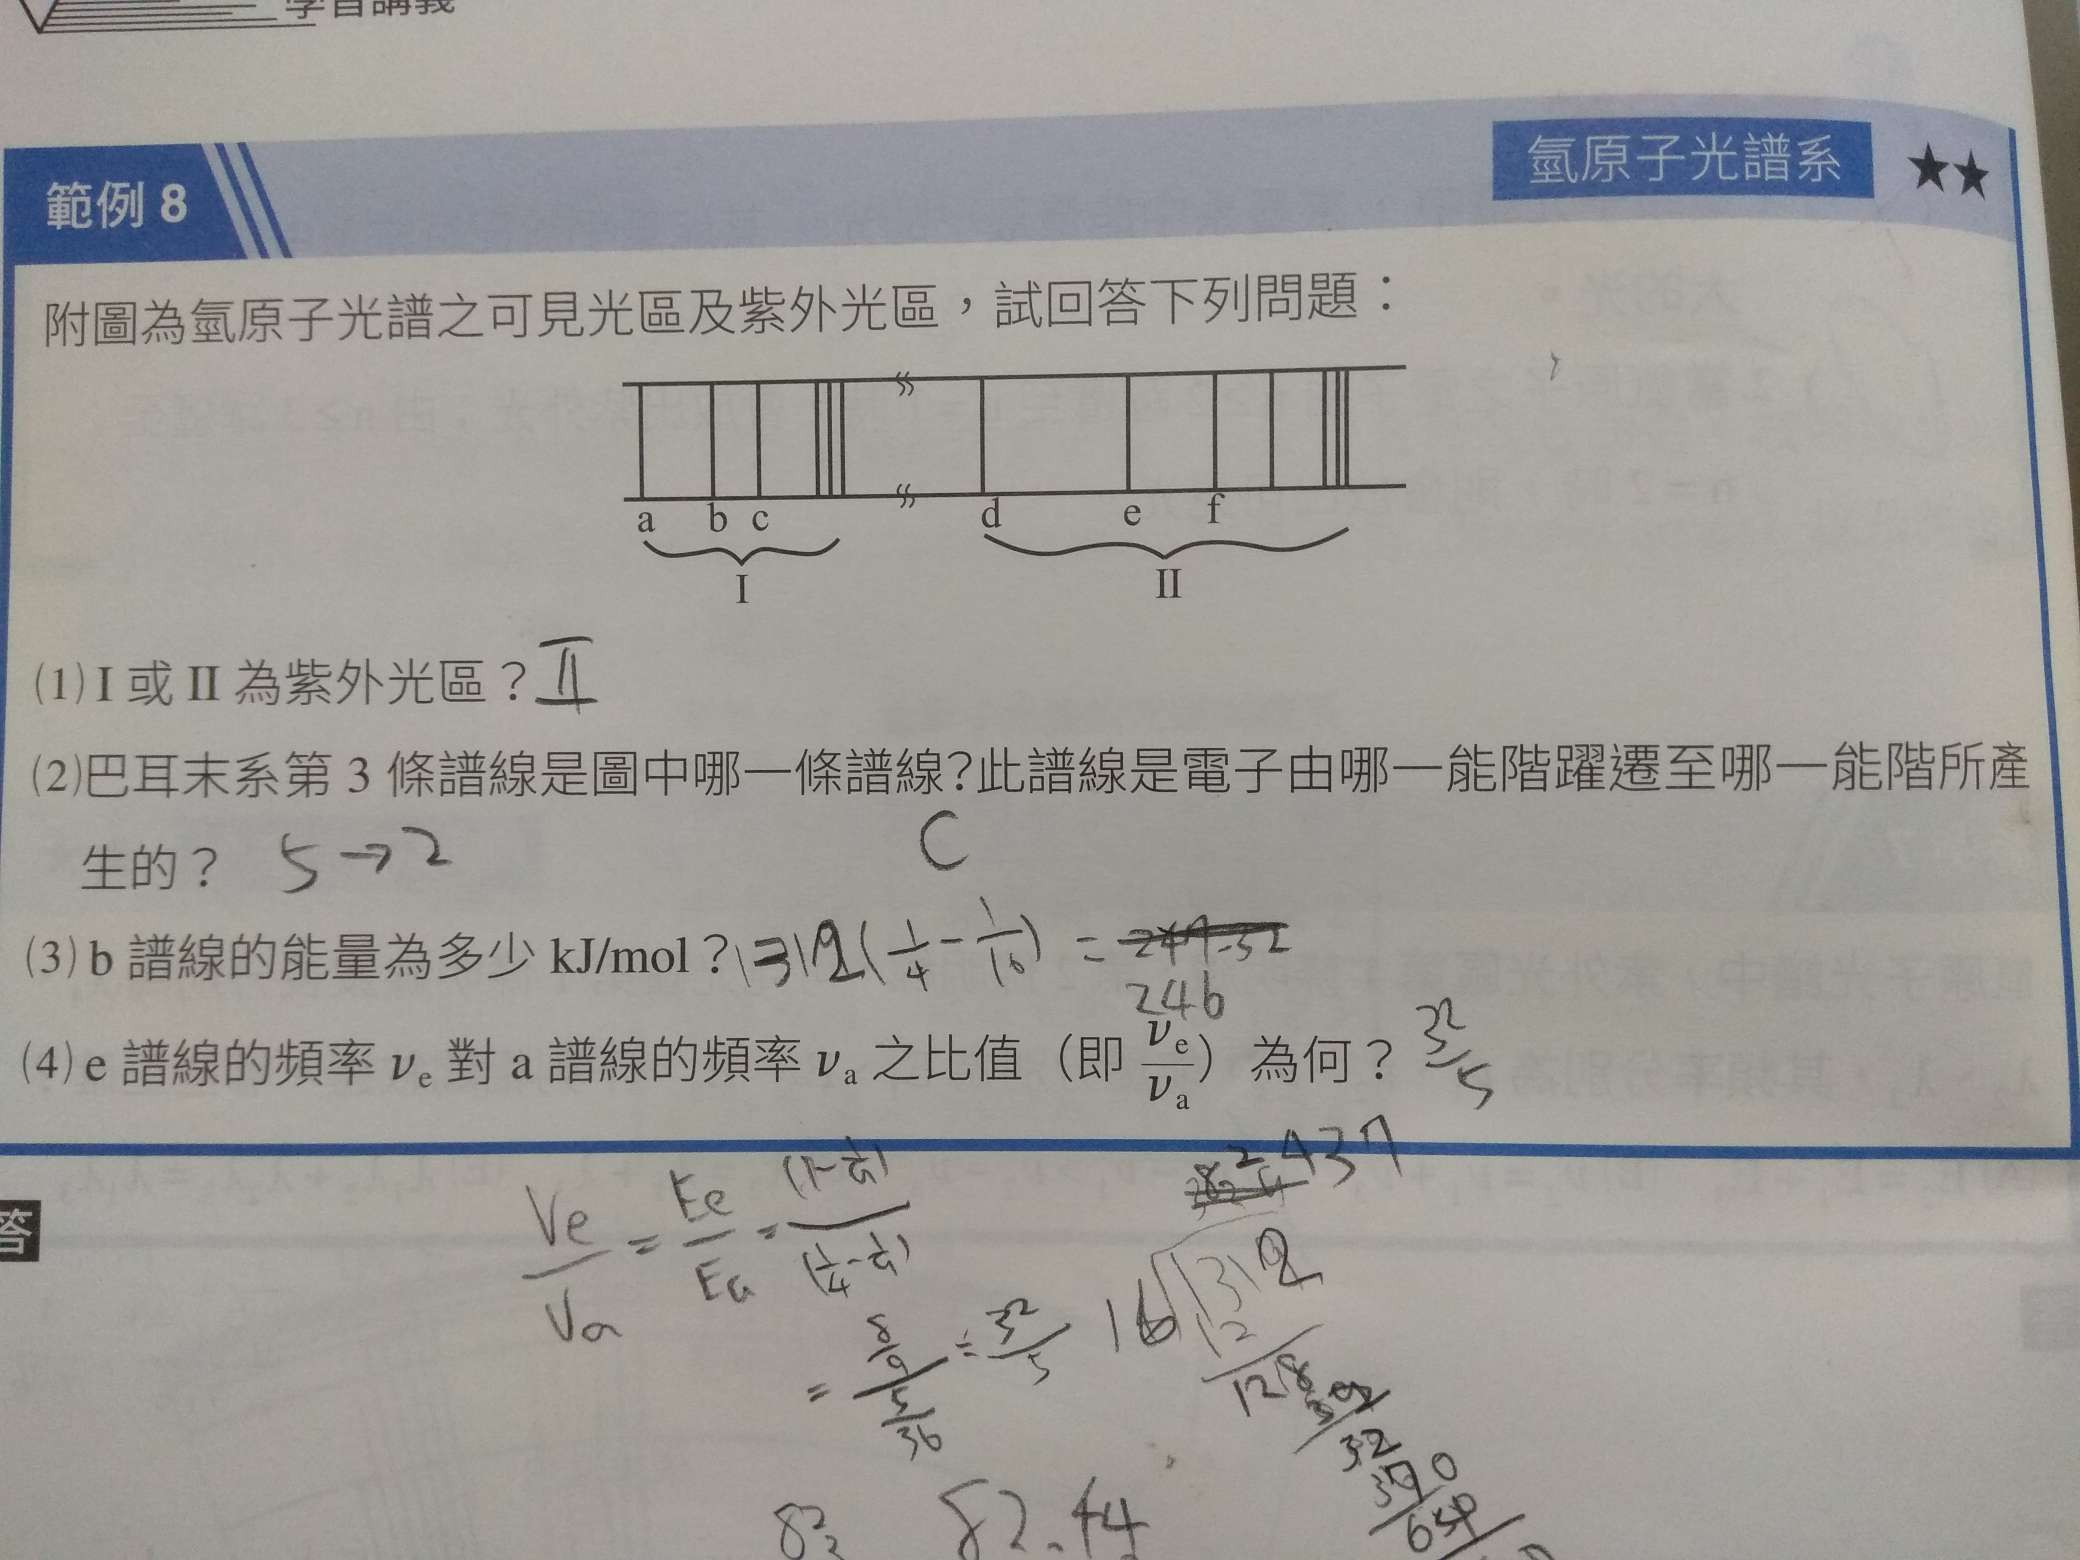 學習講義
範例 8
氫原子光譜系 ★★
附圖為氫原子光譜之可見光區及紫外光區，試回答下列問題：
a b c d e f
I II
(1) I 或 II 為紫外光區？ II
(2)巴耳末系第 3 條譜線是圖中哪一條譜線？此譜線是電子由哪一能階躍遷至哪一能階所產
生的？ 5→2 C
(3) b 譜線的能量為多少 kJ/mol？ 1312(1/4 - 1/16) =
246
(4) e 譜線的頻率 νe 對 a 譜線的頻率 νa 之比值（即 νe/νa）為何？ 32/5
Ve/Va = Ee/Ea = (1-1/9)/(1/4-1/9)
= 8/9 / 5/36 = 32/5
16 1312
12
82.44
答